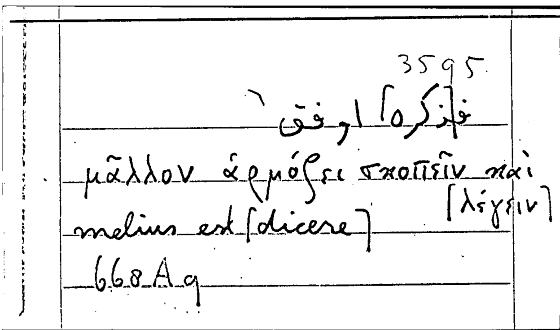 3595
فذكره] اوفق]
μᾶλλον ἁρμόζει σκοπεῖν καὶ
[λέγειν]
melius est [dicere]
668 A 9